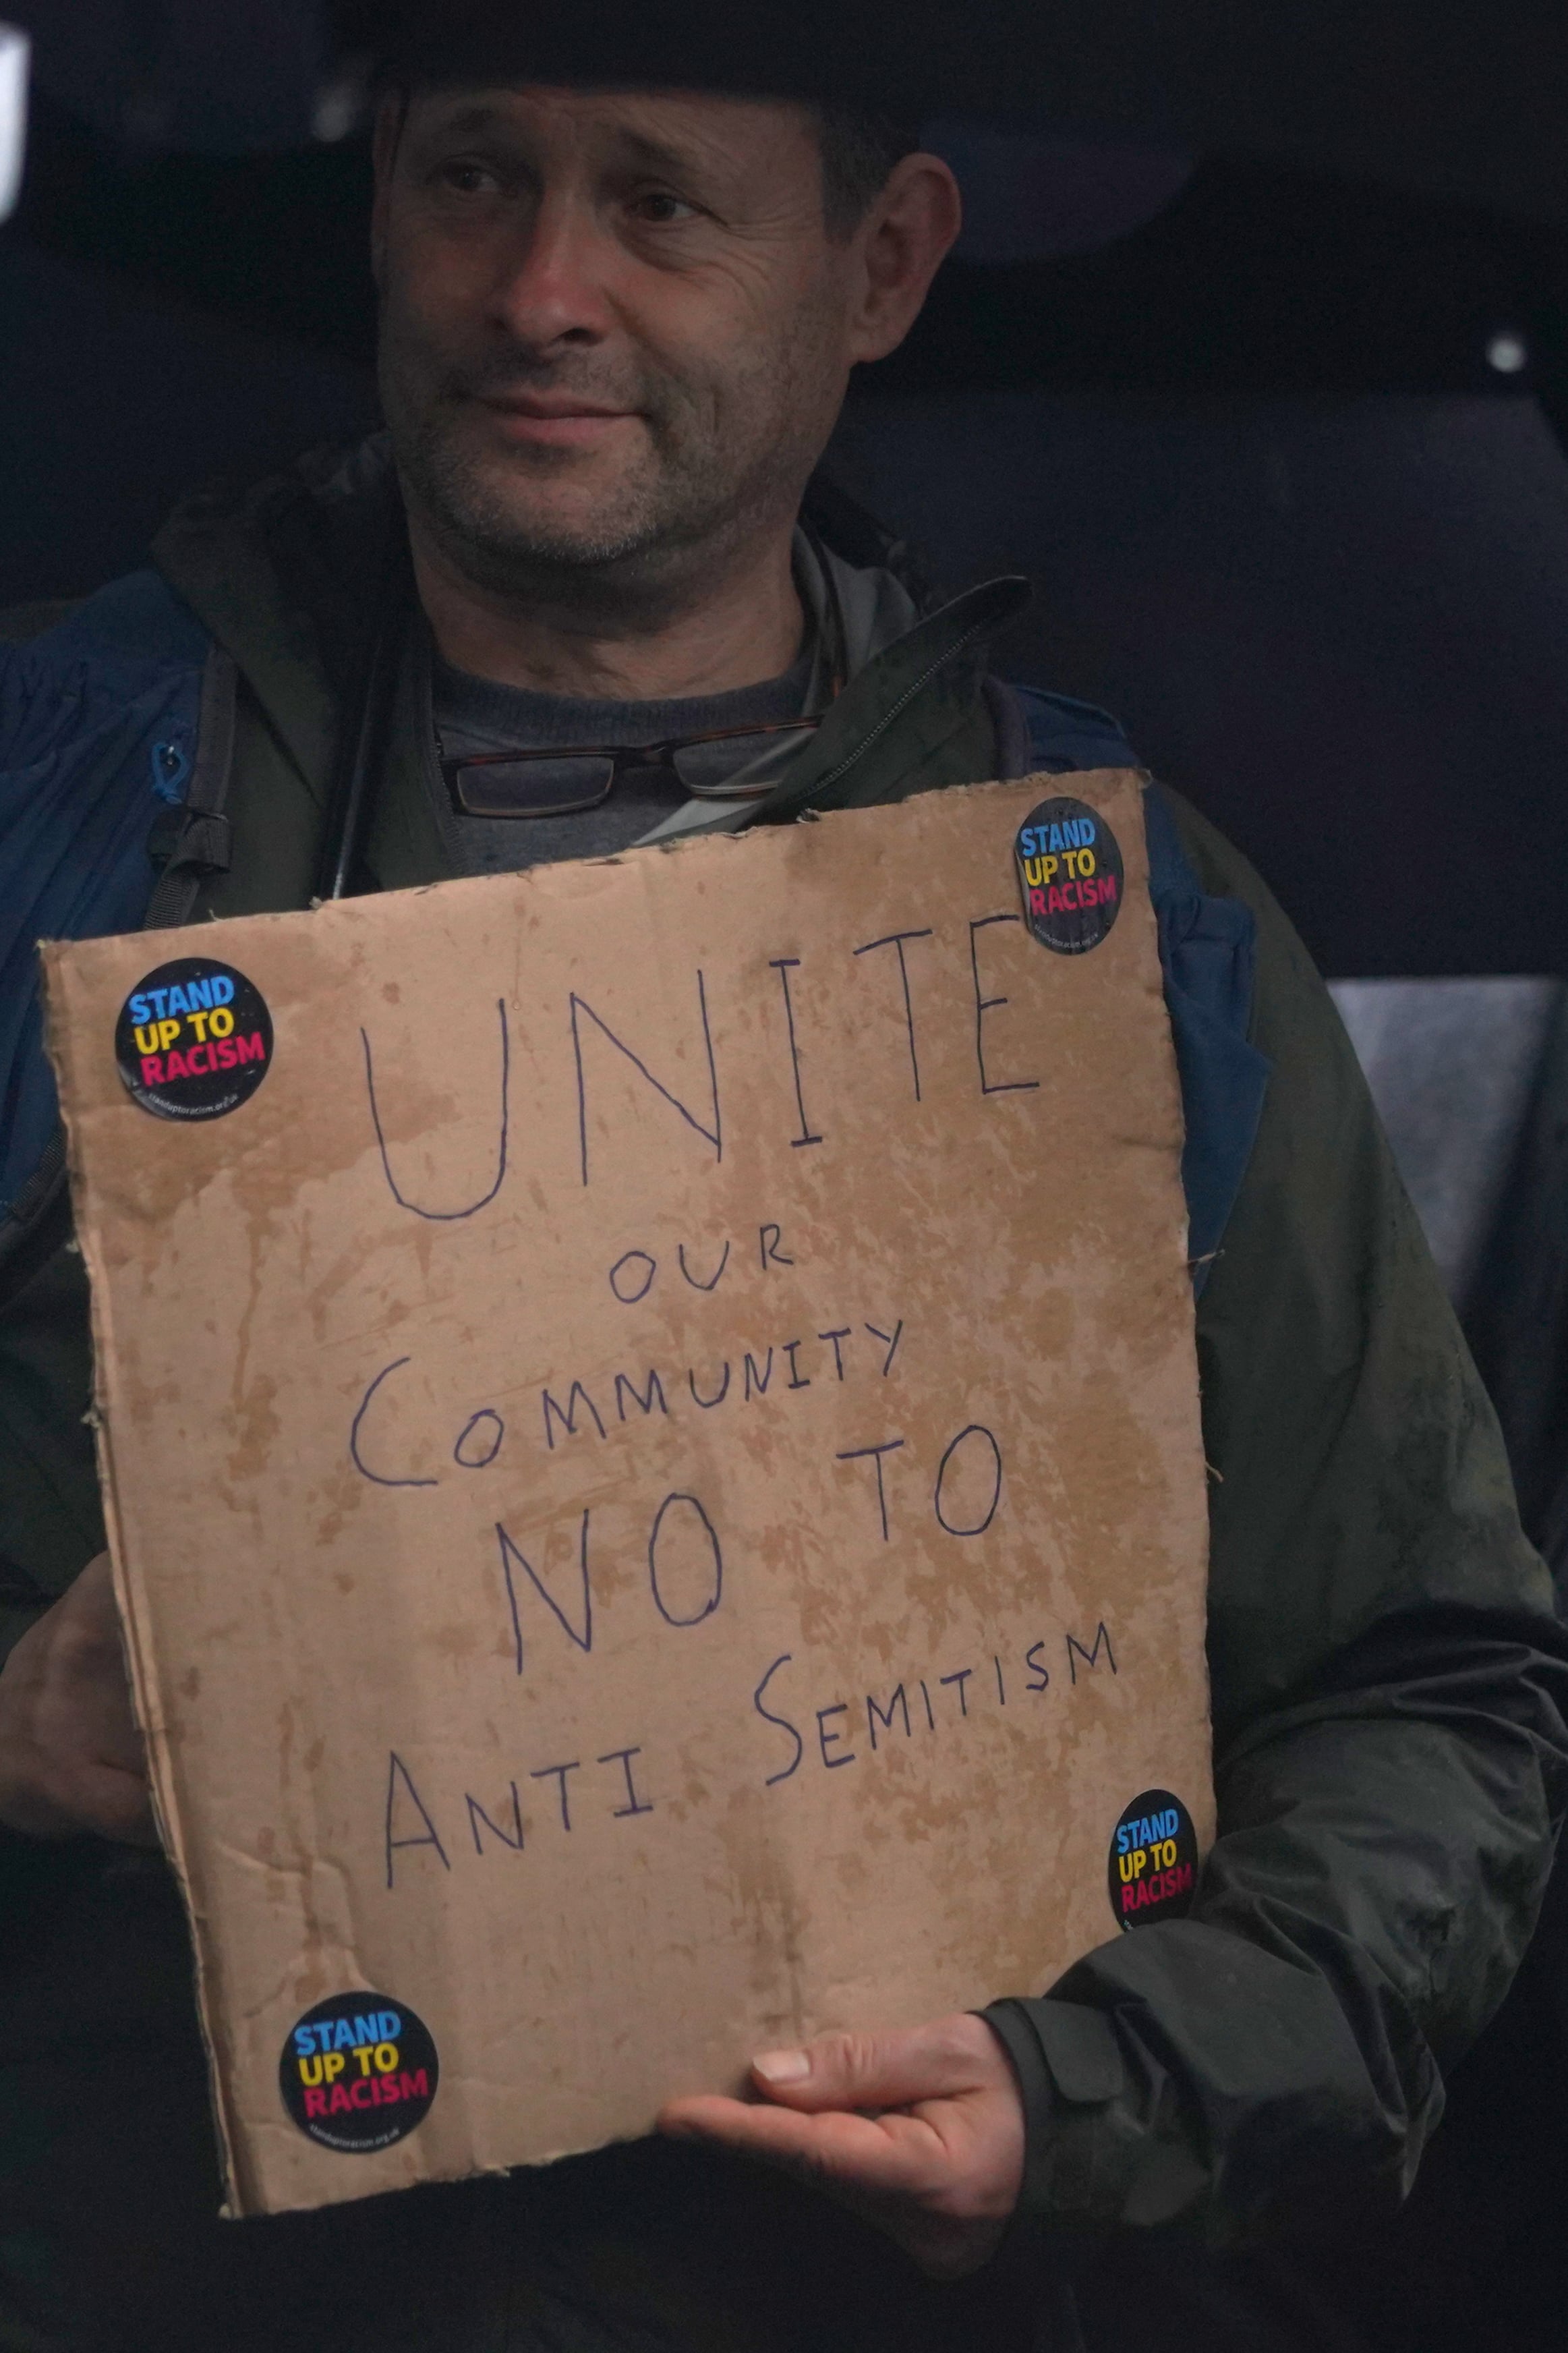 STAND
UP TO
RACISM
standuptoracism.org.uk
STAND
UP TO
RACISM
standuptoracism.org.uk
UNITE
OUR
COMMUNITY
NO TO
ANTI SEMITISM
STAND
UP TO
RACISM
STAND
UP TO
RACISM
standuptoracism.org.uk